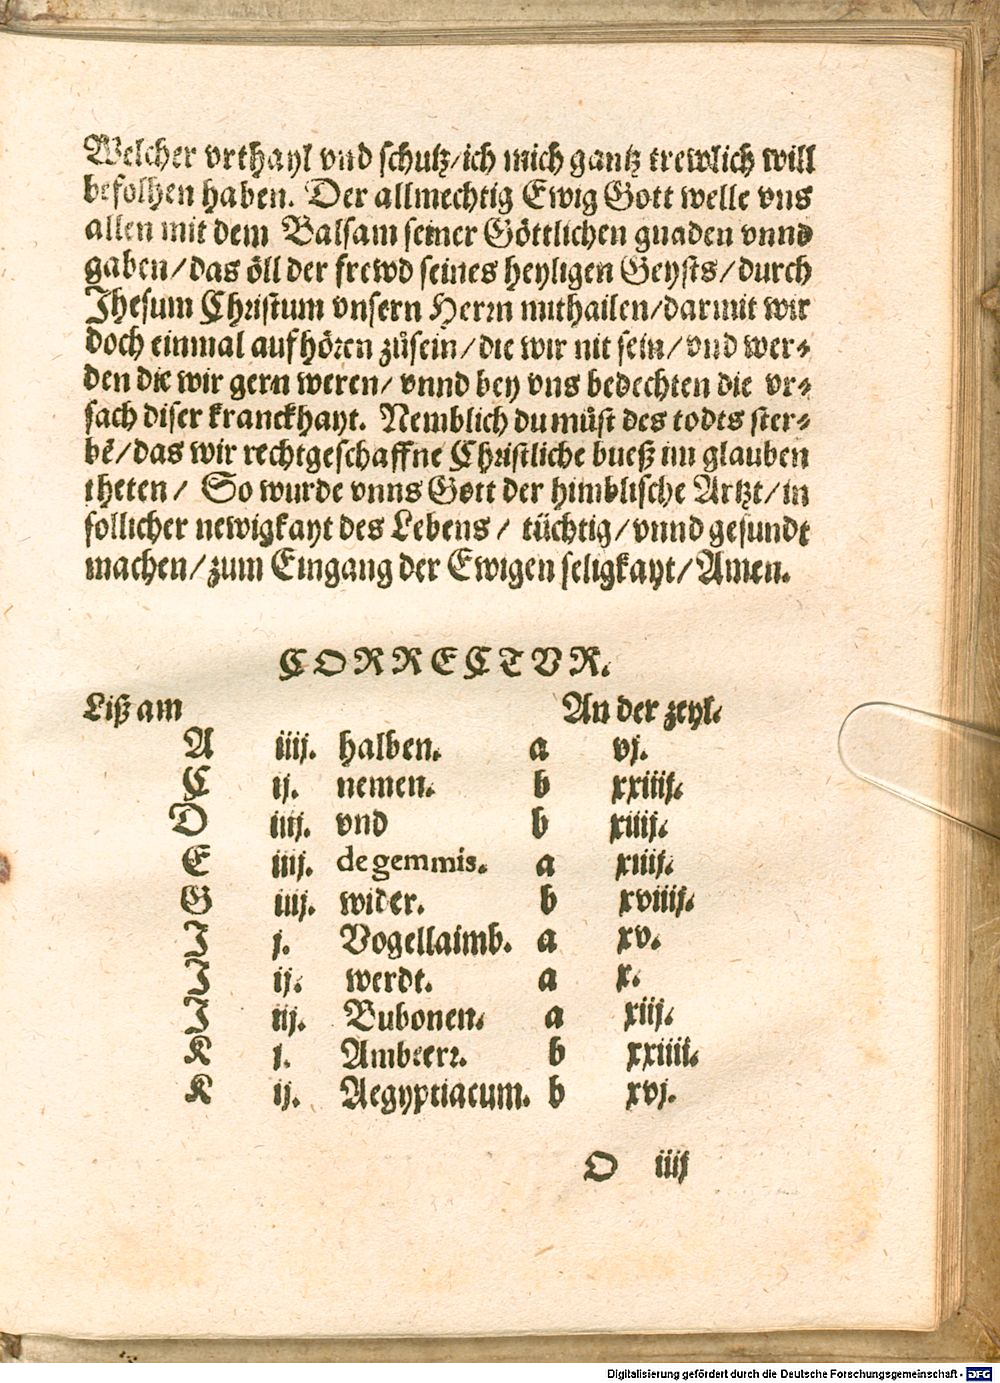 Welcher vrthayl vnd schutz/ich mich gantz trewlich will
befolhen haben. Der allmechtig Ewig Gott welle vns
allen mit dem Balsam seiner Göttlichen gnaden vnnd
gaben/das öll der frewd seines heyligen Geysts/durch
Jhesum Christum vnsern Herrn mithailen/darmit wir
doch einmal aufhören zůsein/die wir nit sein/vnd wer⸗
den die wir gern weren/vnnd bey vns bedechten die vr⸗
sach diser kranckhayt. Nemblich du můst des todts ster⸗
bē/das wir rechtgeschaffne Christliche bueß im glauben
theten/ So wurde vnns Gott der himblische Artzt/in
sollicher newigkayt des Lebens/ tüchtig/vnnd gesundt
machen/zum Eingang der Ewigen seligkayt/Amen.
CORRECTVR.
Liß am An der zeyl.
A iiij. halben. a vj.
C ij. nemen. b xxiiij.
D iiij. vnd b xiiij.
E iiij. de gemmis. a xiiij.
G iiij. wider. b xviiij.
J j. Vogellaimb. a xv.
J ij. werdt. a x.
J iij. Bubonen. a xiij.
K j. Ambeerr. b xxiiii.
K ij. Aegyptiacum. b xvj.
O iiij
Digitalisierung gefördert durch die Deutsche Forschungsgemeinschaft - DFG